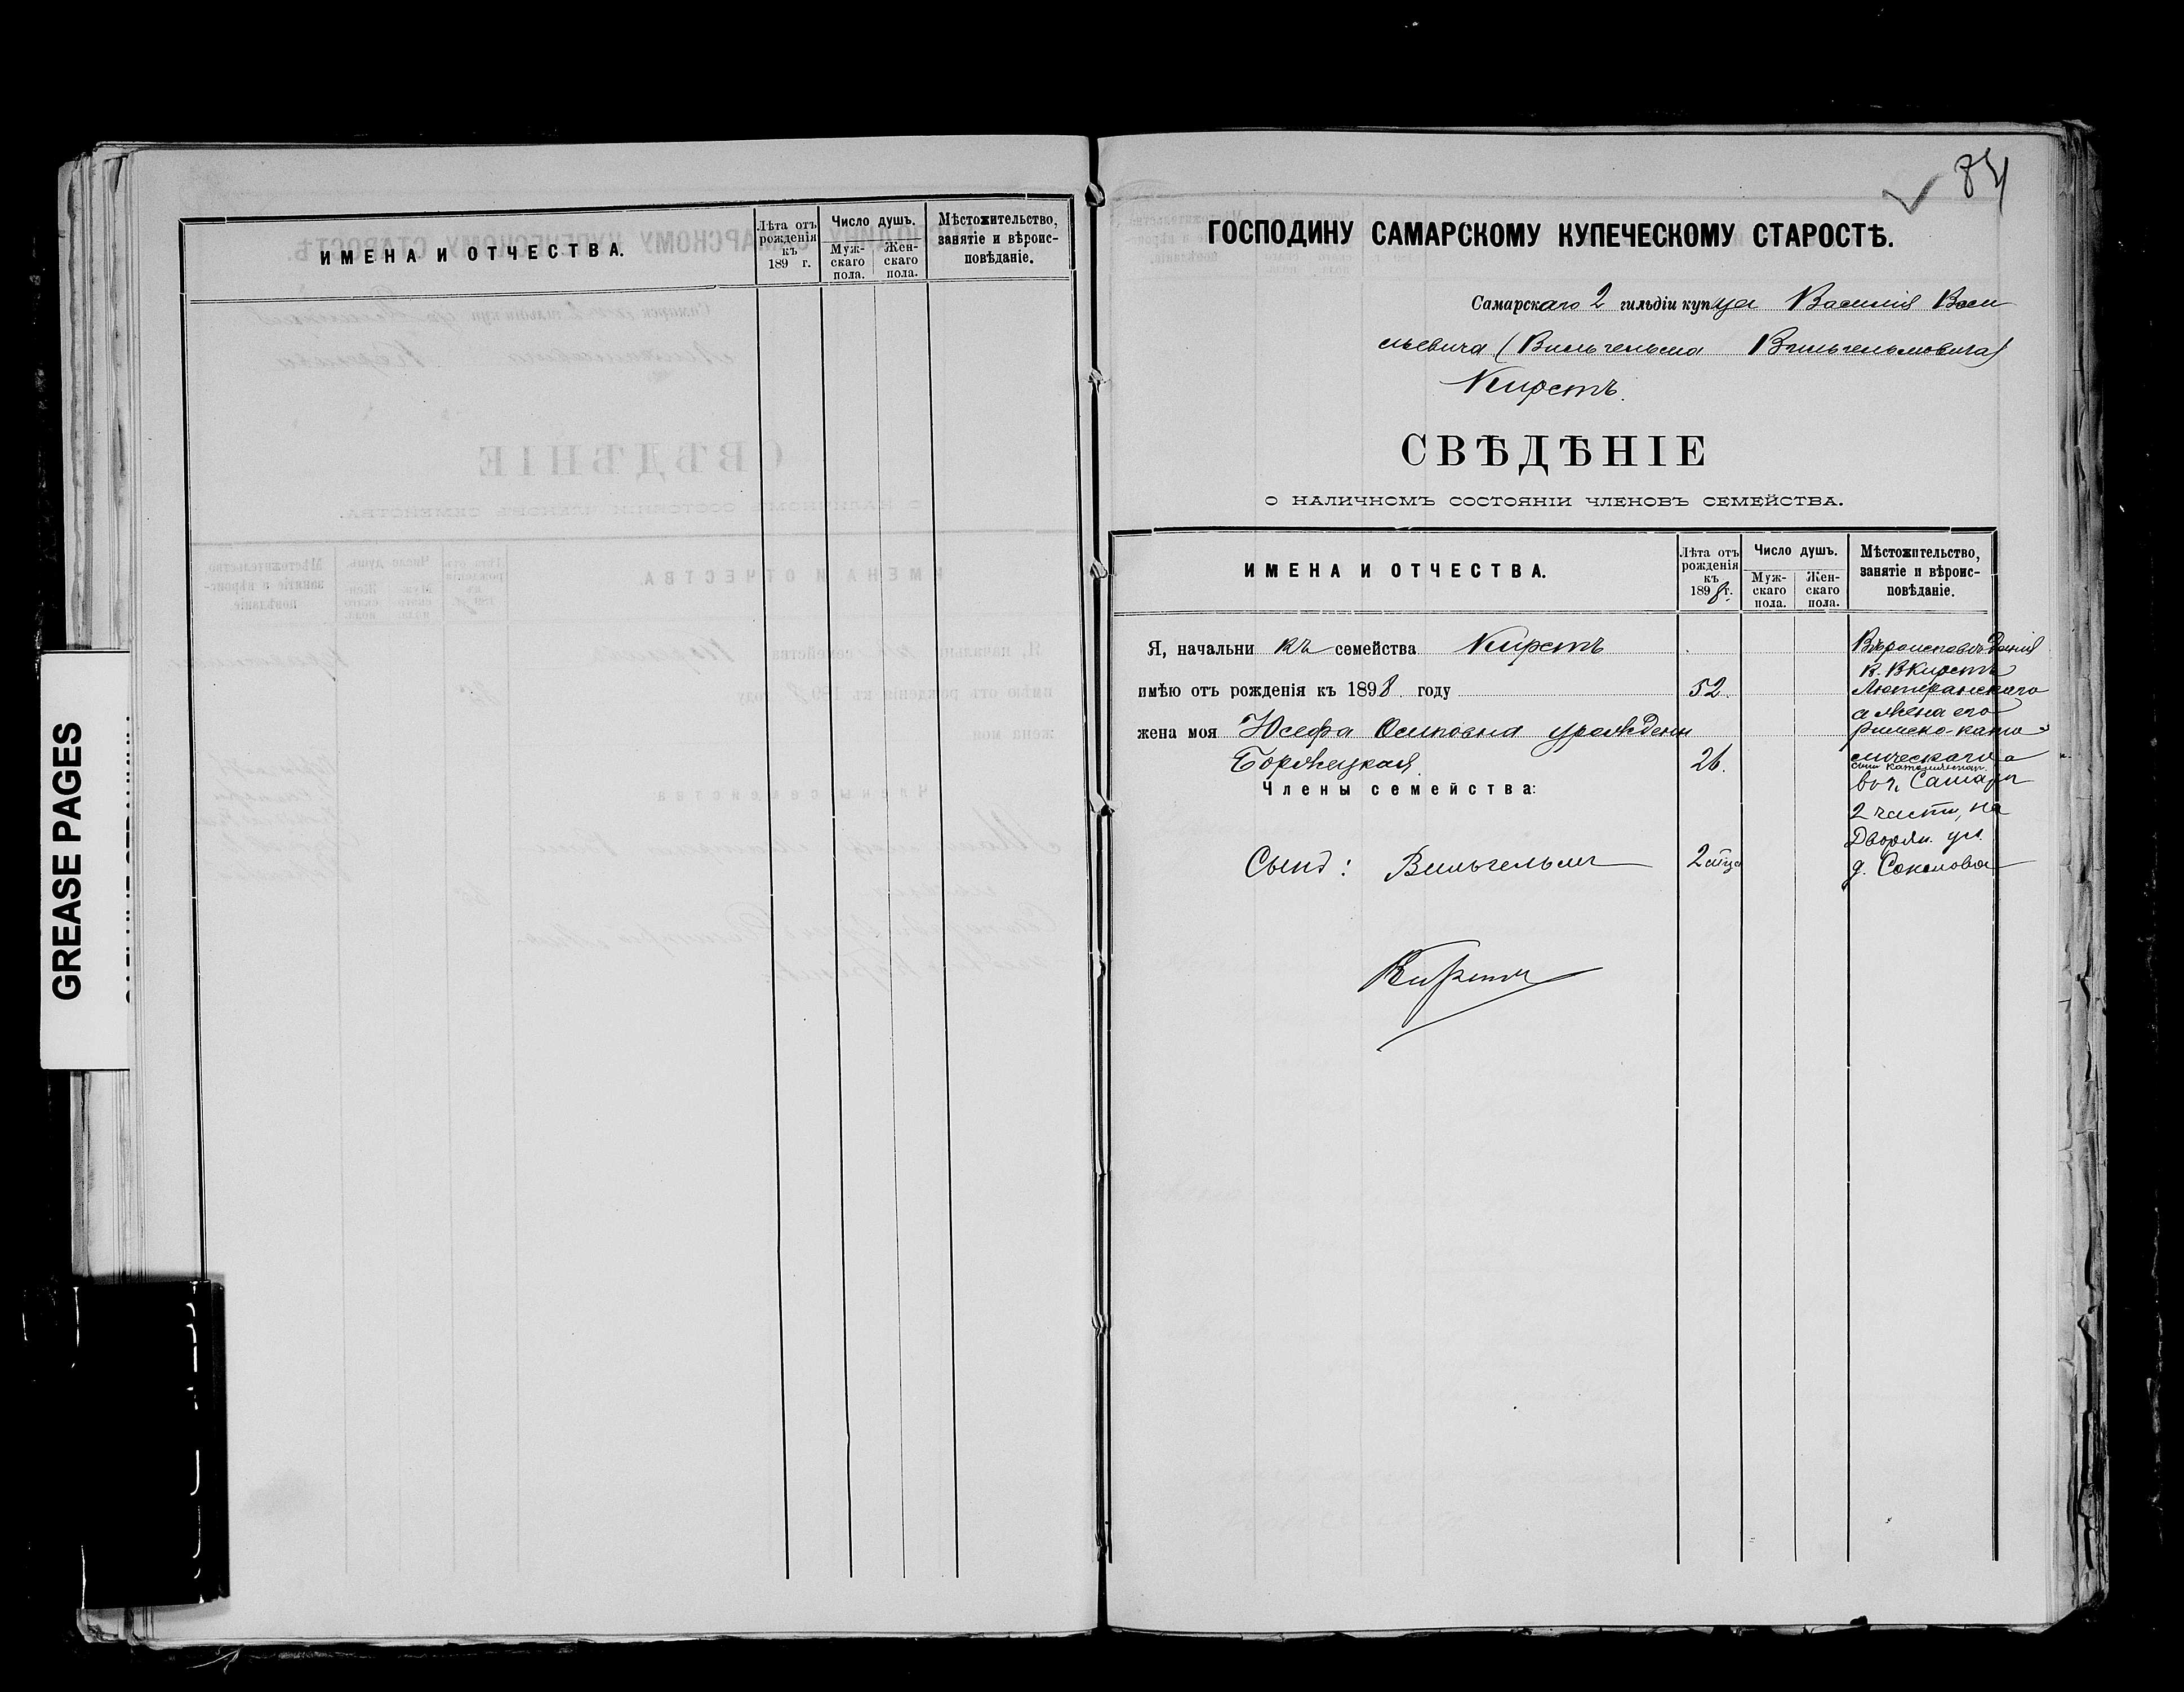 GREASE PAGES
ИМЕНА И ОТЧЕСТВА.
Лѣта отъ рожденія къ 189 г.
Число душъ.
Муж-скаго пола.
Жен-скаго пола.
Мѣстожительство, занятіе и вѣроис-повѣданіе.
84
ГОСПОДИНУ САМАРСКОМУ КУПЕЧЕСКОМУ СТАРОСТѢ.
Самарскаго 2 гильдіи купца Василія Васи
льевича (Вильгельма Вильгельмовича)
Кирстъ.
СВѢДѢНІЕ
О НАЛИЧНОМЪ СОСТОЯНІИ ЧЛЕНОВЪ СЕМЕЙСТВА.
ИМЕНА И ОТЧЕСТВА.
Лѣта отъ рожденія къ 1898 г.
Число душъ.
Муж-скаго пола.
Жен-скаго пола.
Мѣстожительство, занятіе и вѣроис-повѣданіе.
Я, начальникъ семейства Кирстъ
имѣю отъ рожденія къ 1898 году 52.
жена моя Юсефа Осиповна урожденн
Боржецкая 26.
Члены семейства:
Сынъ: Вильгельмъ 2
Вѣроисповѣданія
В. В Кирстъ
Лютеранскаго
а жена его
римско-като-
лическаго а
сынъ
въ г. Самарѣ
2 части, на
Дворян. ул.
д. Соколова
Кирстъ